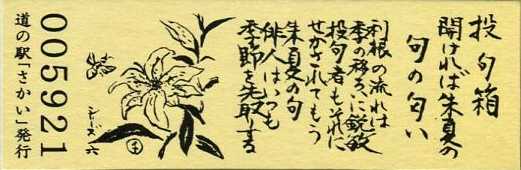 投句箱
開ければ朱夏の
句の匂い
利根の流れは
季の移ろいに鋭敏
投句者もそれに
せかされてもう
朱夏の句
俳人はいつも
季節を先取する
シリーズ六
005921
道の駅「さかい」発行